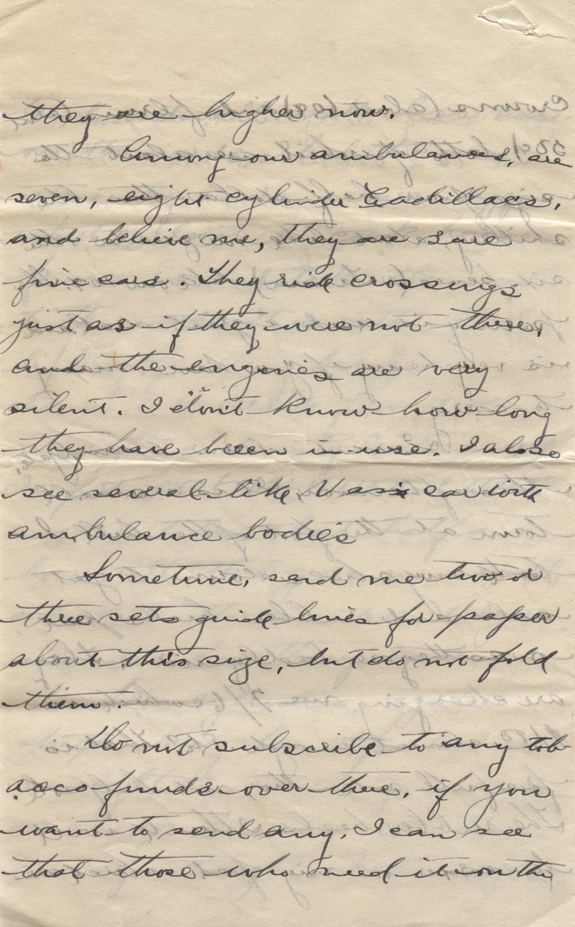 they are higher now.
Among our ambulances, are
seven, eight cylinder Cadillacs,
and believe me, they are sure
fine cars. They ride crossings
just as if they were not there,
and the engines are very
silent. I don't know how long
they have been in use. I also
see several like Vas car with
ambulance bodies
Sometime, send me two or
three sets guide lines for paper
about this size, but do not fold
them.
Do not subscribe to any tob-
acco funds over there, if you
want to send any. I can see
that those who need it on the